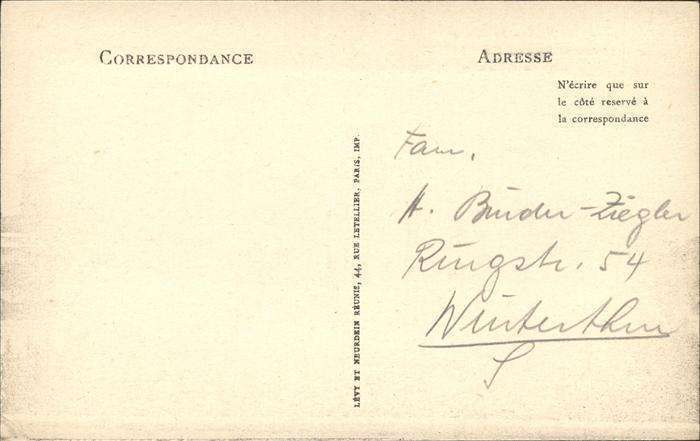 CORRESPONDANCE
ADRESSE
N'écrire que sur
le côté reservé à
la correspondance
LÉVY ET NEURDEIN RÉUNIS, 44, RUE LETELLIER, PARIS, IMP.
Fam.
A. Binder-Ziegler
Ringstr. 54
Winterthur